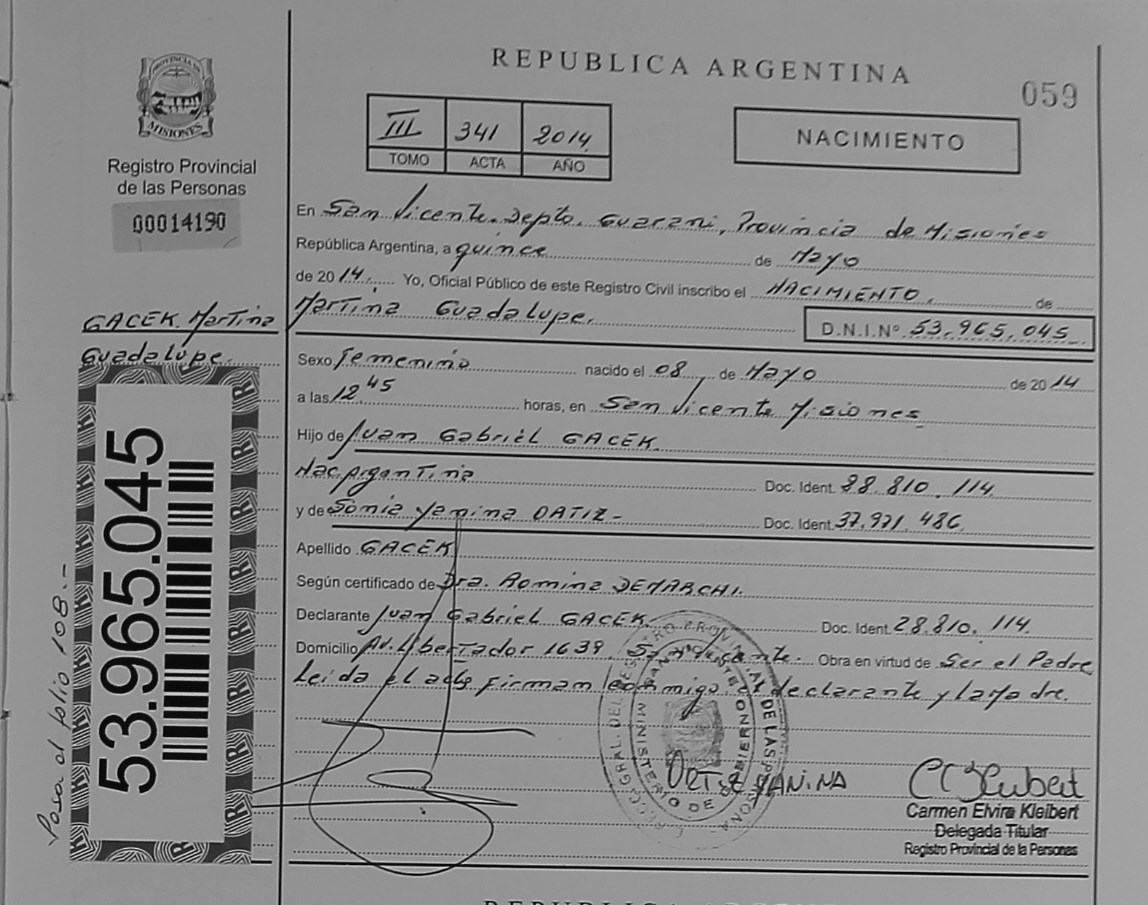 REPUBLICA ARGENTINA
059
PROVINCIA DE
MISIONES
Registro Provincial
de las Personas
00014190
III 341 2014
TOMO ACTA AÑO
NACIMIENTO
En San Vicente. Depto. Guarani, Provincia de Misiones
República Argentina, a quince de Mayo
de 2014. Yo, Oficial Público de este Registro Civil inscribo el NACIMIENTO. de
Martina Guadalupe. D.N.I.Nº 53.965.045
GACEK Martina
Guadalupe.
Sexo Femenino nacido el 08 de Mayo de 2014
a las 12 45 horas, en San Vicente Misiones
Hijo de Juan Gabriel GACEK.
Nac. Argentina Doc. Ident. 28.810.114
y de Sonia Yanina Doc. Ident. 37.971.486
Apellido GACEK
Según certificado de Dra. Romina DEMARCHI.
Declarante Juan Gabriel GACEK. Doc. Ident. 28.810.114.
Domicilio Av. Libertador 1639 San Vicente. Obra en virtud de Ser el Padre
Leida el acta firman conmigo el declarante y la madre.
53.965.045
Pasa al folio 108.-
YANINA
Carmen Elvira Kleibert
Delegada Titular
Registro Provincial de la Personas